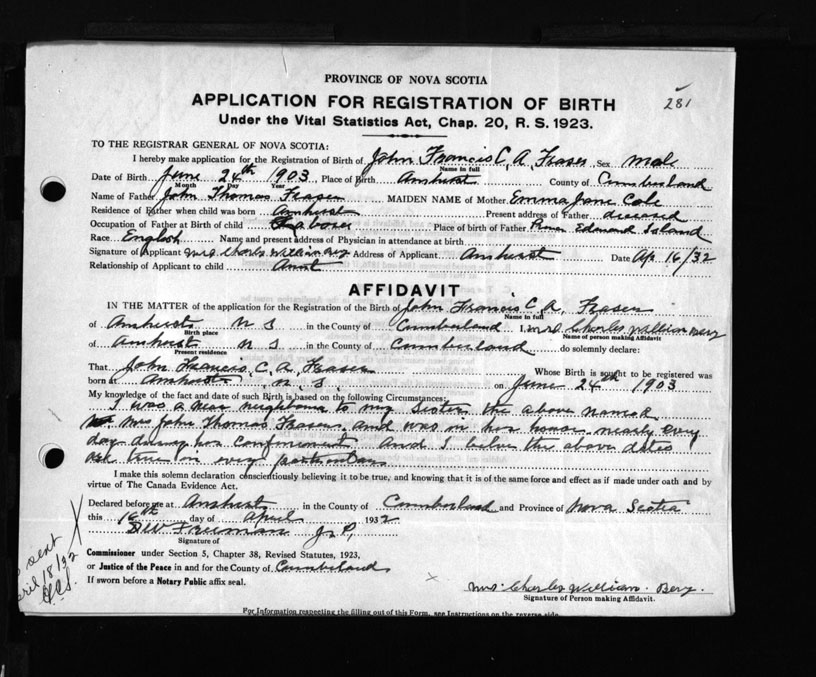 PROVINCE OF NOVA SCOTIA
281
APPLICATION FOR REGISTRATION OF BIRTH
Under the Vital Statistics Act, Chap. 20, R. S. 1923.
TO THE REGISTRAR GENERAL OF NOVA SCOTIA:
I hereby make application for the Registration of Birth of John Francis C. A. Fraser Sex Male
Name in full
Date of Birth June 24th 1903, Place of Birth Amherst County of Cumberland
Month Day Year
Name of Father John Thomas Fraser MAIDEN NAME of Mother Emma Jane Cole
Residence of Father when child was born Amherst Present address of Father
Occupation of Father at Birth of child Place of birth of Father Edward Island
Race English Name and present address of Physician in attendance at birth
Signature of Applicant Mrs. Charles William Address of Applicant Amherst Date Ap. 16/32
Relationship of Applicant to child Aunt
AFFIDAVIT
IN THE MATTER of the application for the Registration of the Birth of John Francis C. A. Fraser
Name in full
of Amherst N S in the County of Cumberland I, Mrs Charles William
Birth place Name of person making Affidavit
of Amherst N S in the County of Cumberland do solemnly declare:
Present residence
That John Francis C. A. Fraser Whose Birth is sought to be registered was
born at Amherst, N. S. on June 24th 1903
My knowledge of the fact and date of such Birth is based on the following Circumstances:
I was a near to my Sister the above named
Mrs John Thomas Fraser and was in her house nearly every
day during her confinement And I the above dates
true in every
I make this solemn declaration conscientiously believing it to be true, and knowing that it is of the same force and effect as if made under oath and by
virtue of The Canada Evidence Act.
Declared before me at Amherst in the County of Cumberland and Province of Nova Scotia
this 16th day of April 1932
Freeman J. P.,
Signature of
Commissioner under Section 5, Chapter 38, Revised Statutes, 1923,
or Justice of the Peace in and for the County of Cumberland
If sworn before a Notary Public affix seal.
sent
April 18/32
Mrs. Charles William
Signature of Person making Affidavit.
For Information respecting the filling out of this Form, see Instructions on the reverse side.